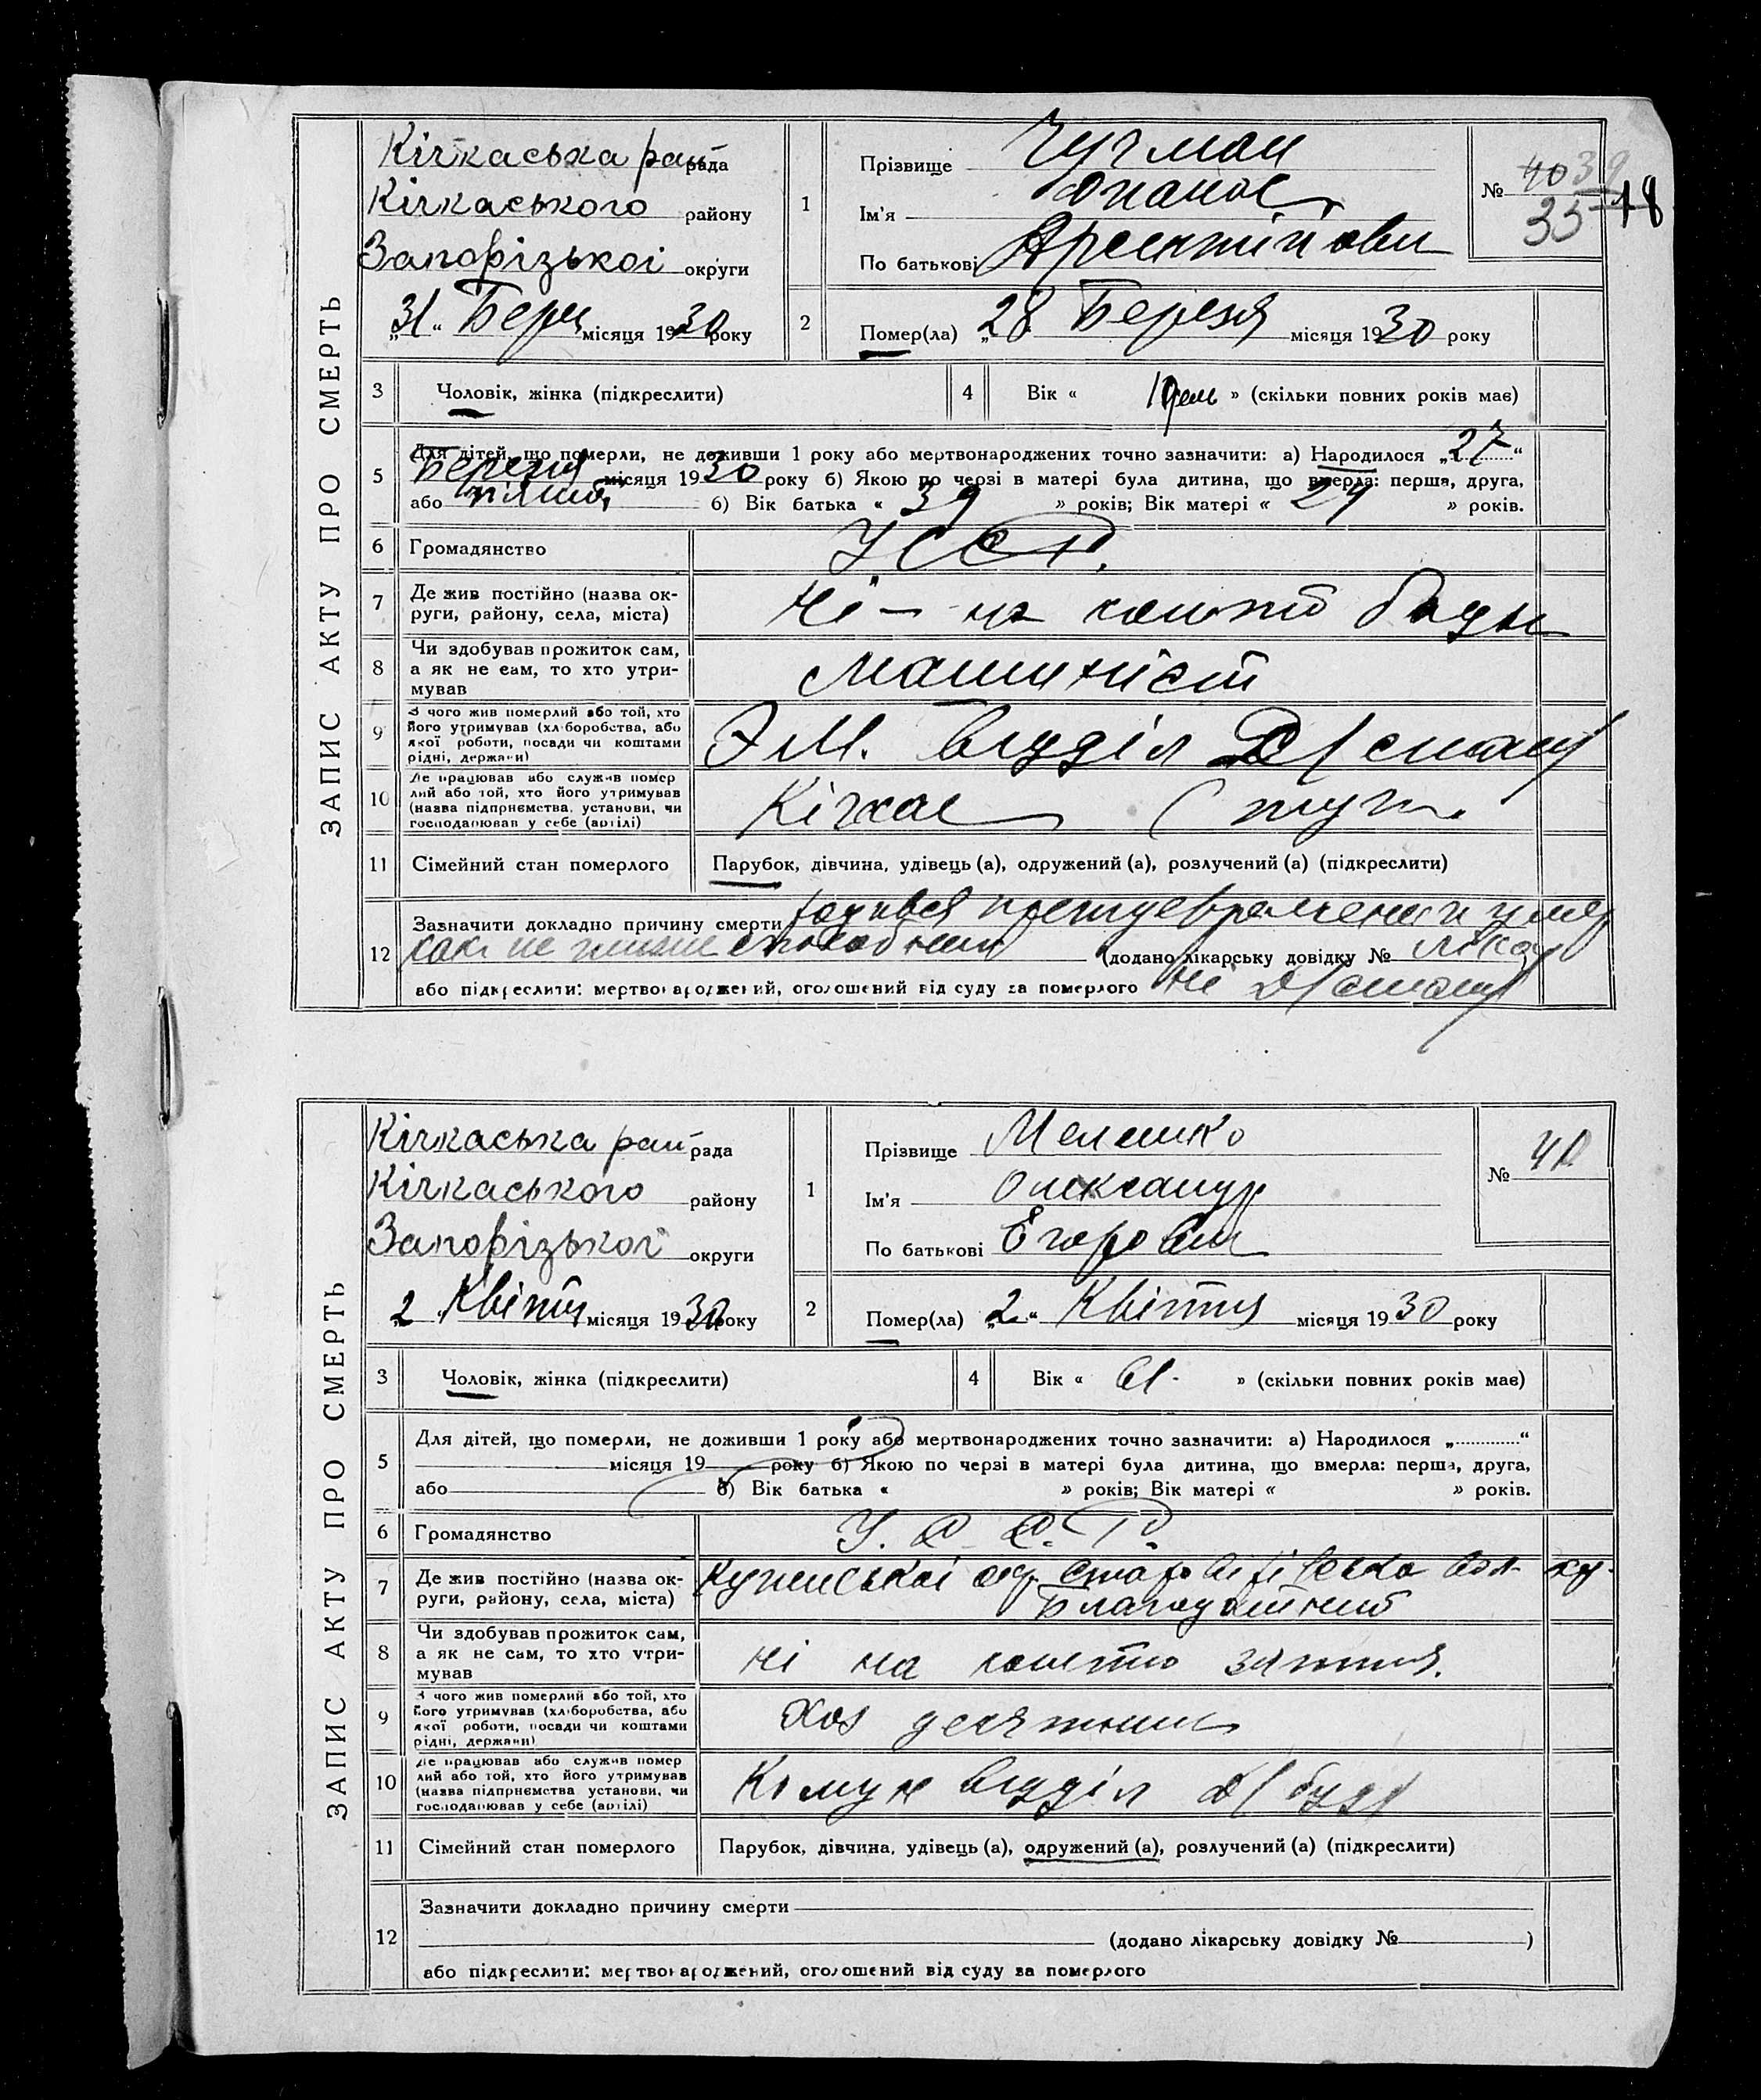 ЗАПИС АКТУ ПРО СМЕРТЬ
Кічкаська рай рада
Кічкаського району
Запорізької округи
„31“ Берез місяця 1930 року
1
Прізвище
Ім'я Опанас
По батькові
№ 40 39
35 18
2
Помер(ла) „28“ Березня місяця 1930 року
3 Чоловік, жінка (підкреслити)
4 Вік « 1 день » (скільки повних років має)
5 Для дітей, що померли, не доживши 1 року або мертвонароджених точно зазначити: а) Народилося „27“
Березня місяця 1930 року б) Якою по черзі в матері була дитина, що вмерла: перша, друга,
або б) Вік батька « 39 » років; Вік матері « 24 » років.
6 Громадянство УССР.
7 Де жив постійно (назва округи, району, села, міста) Ні — на кошти
8 Чи здобував прожиток сам, а як не сам, то хто утримував Машиніст
9 З чого жив померлий або той, хто його утримував (хліборобства, або якої роботи, посади чи коштами рідні, держави) Э М. відділ
10 Де працював або служив померлий або той, хто його утримував (назва підприємства, установи, чи господарював у себе (артілі) Кічкас ( тут.
11 Сімейний стан померлого Парубок, дівчина, удівець (а), одружений (а), розлучений (а) (підкреслити)
12 Зазначити докладно причину смерти родився преждевременно и умер
как не жизнеспособный (додано лікарську довідку №
або підкреслити: мертвонароджений, оголошений від суду за померлого
ЗАПИС АКТУ ПРО СМЕРТЬ
Кічкаська рай рада
Кічкаського району
Запорізької округи
„2 Квітня місяця 1930 року
1
Прізвище Мелешко
Ім'я Олександр
По батькові Егорович
№ 40
2
Помер(ла) „2“ Квітня місяця 1930 року
3 Чоловік, жінка (підкреслити)
4 Вік « 61 » (скільки повних років має)
5 Для дітей, що померли, не доживши 1 року або мертвонароджених точно зазначити: а) Народилося „ “
місяця 19 року б) Якою по черзі в матері була дитина, що вмерла: перша, друга,
або б) Вік батька « » років; Вік матері « » років.
6 Громадянство У. С. С. Р.
7 Де жив постійно (назва округи, району, села, міста)
8 Чи здобував прожиток сам, а як не сам, то хто утримував ні на кошти зятя.
9 З чого жив померлий або той, хто його утримував (хліборобства, або якої роботи, посади чи коштами рідні, держави) Хоз десятник
10 Де працював або служив померлий або той, хто його утримував (назва підприємства установи, чи господарював у себе (артілі) Комун відділ
11 Сімейний стан померлого Парубок, дівчина, удівець (а), одружений (а), розлучений (а) (підкреслити)
12 Зазначити докладно причину смерти
(додано лікарську довідку № )
або підкреслити: мертвонароджений, оголошений від суду за померлого